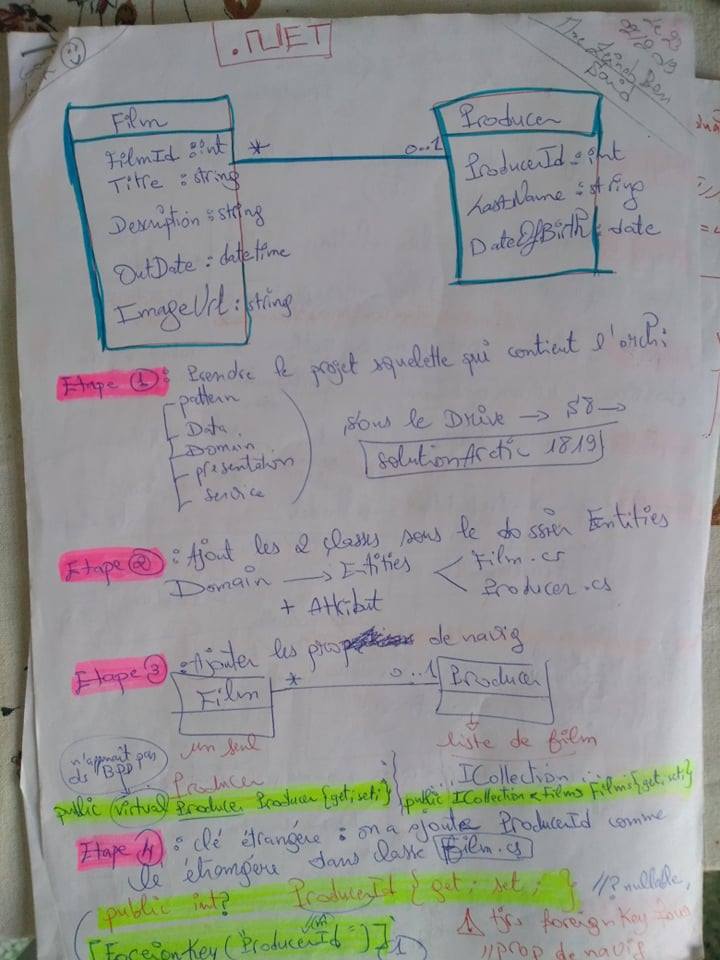 .NET
Le 23
Mme Zeineb Ben
Said
Film
FilmId : int
Titre : string
Description : string
OutDate : datetime
ImageUrl : string
*
0..1
Producer
ProducerId : int
LastName : string
DateOfBirth : date
Etape 1 : Prendre le projet squelette qui contient l'archi
pattern
Data
Domain
presentation
service
sous le Drive → S8 →
solutionArctic 1819
Etape 2 : Ajout les 2 classes sous le dossier Entities
Domain → Entities < Film.cs
Producer.cs
+ Attribut
Etape 3 : Ajouter les prop de navig
Film
*
0..1
Producer
n'apparait pas
ds "BDD"
un seul
Producer
liste de film
ICollection
public virtual Producer Producer {get; set;}
public ICollection<Film> Films {get; set;}
Etape 4 : clé étrangère : on a ajouté ProducerId comme
clé étrangère dans classe Film.cs
public int? ProducerId { get ; set ; } //? nullable,
[ForeignKey("ProducerId")]
1
⚠ tjrs foreignKey sous
//prop de navig